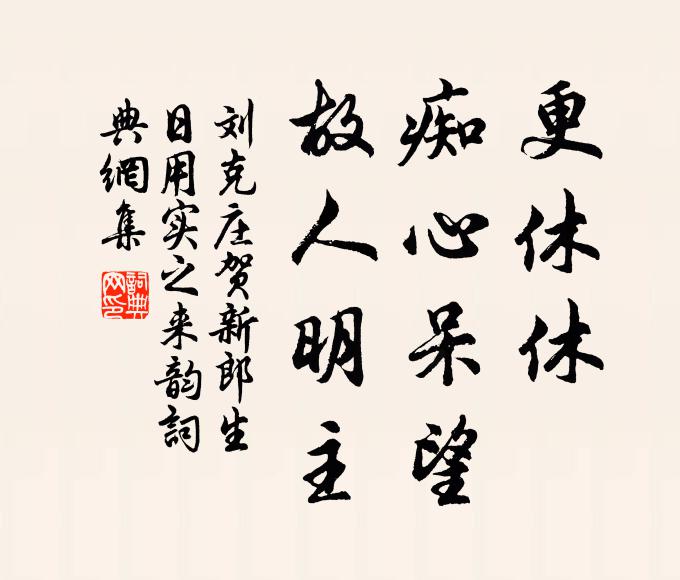 更休休
痴心呆望
故人明主
刘克庄贺新郎生
日用实之来韵詞
典網集
詞典网印